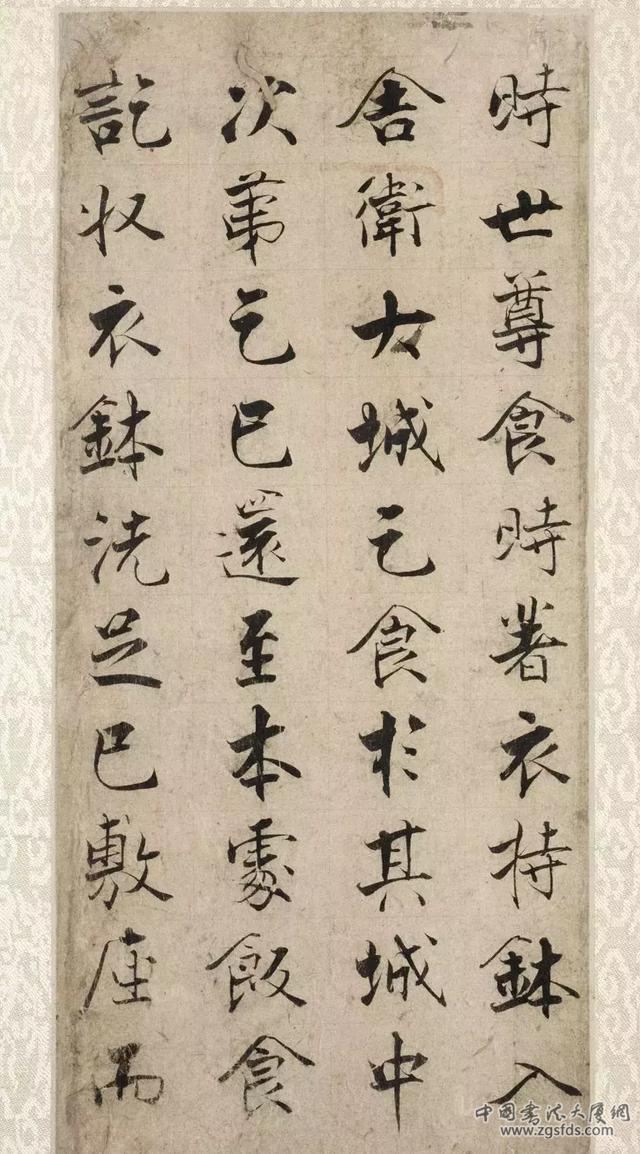 時世尊食時著衣持鉢入
舍衛大城乞食於其城中
次第乞已還至本處飯食
訖收衣鉢洗足已敷座而
中國書法大廈網
www.zgsfds.com